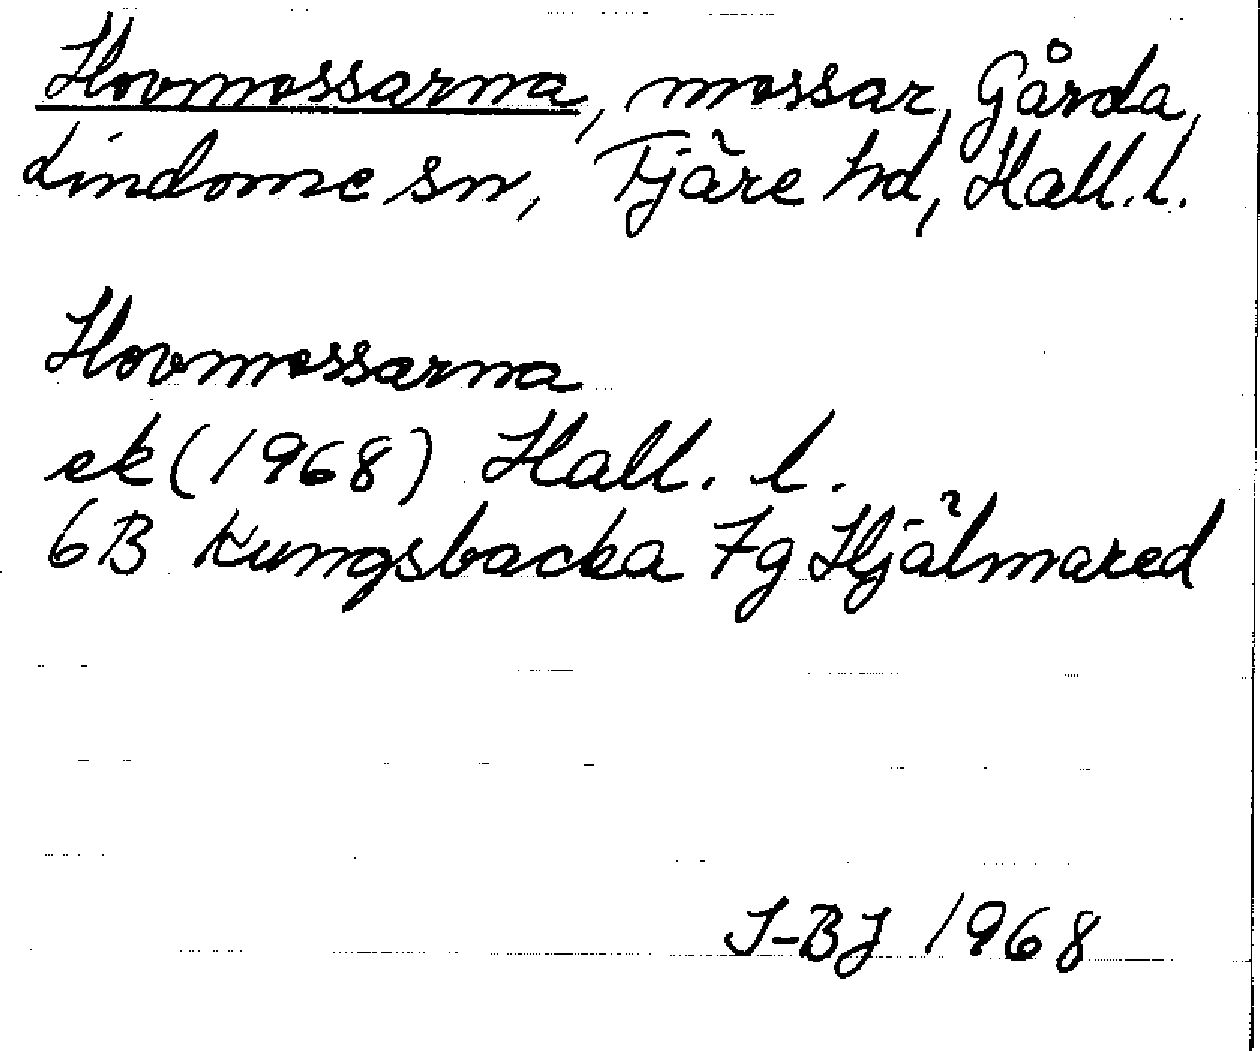 Hovmossarna, mossar, Gårda,
Lindome sn, Fjäre hd, Hall.l.
Hovmossarna
ek (1968) Hall. l.
6B Kungsbacka 7g Hjälmared
I-BJ 1968